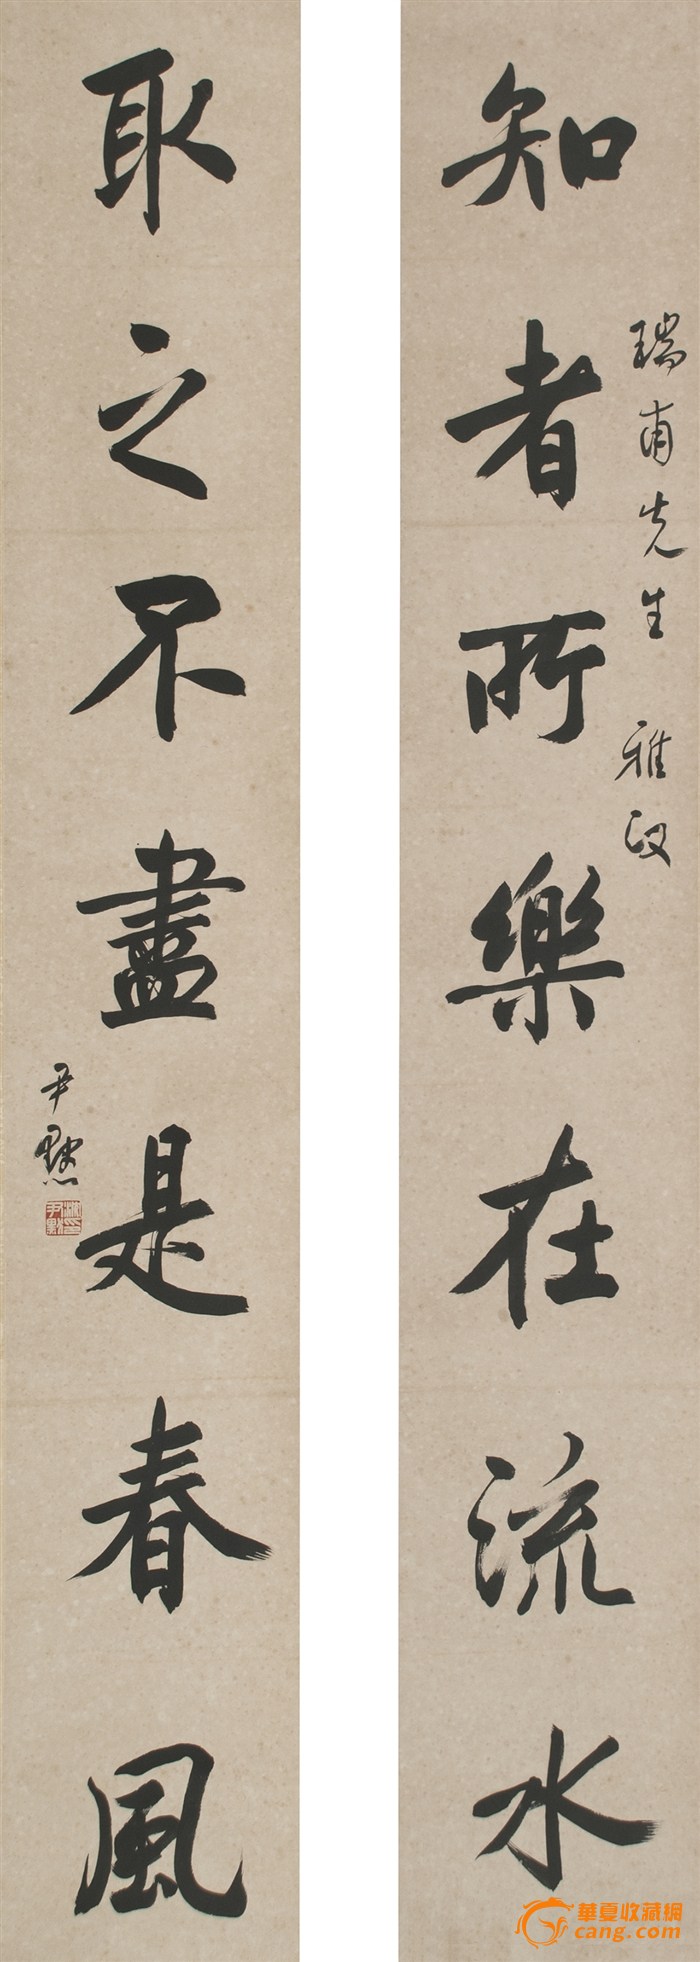 知者所樂在流水
瑞甫先生 雅政
取之不盡是春風
尹默
華夏收藏網
cang.com